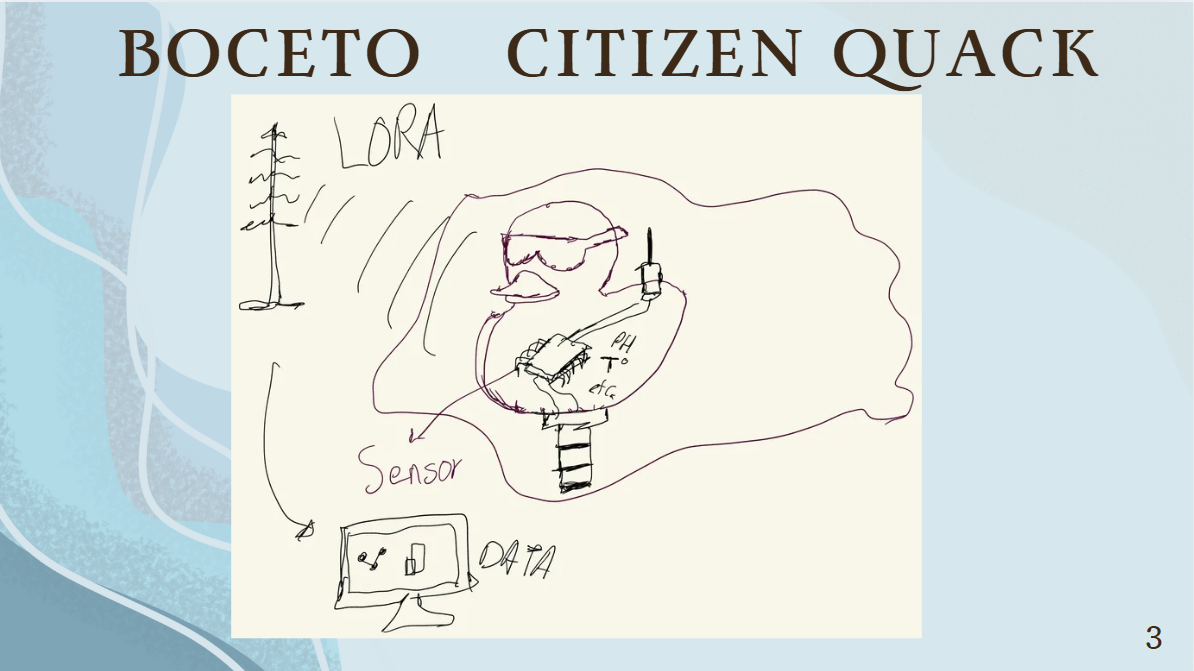 BOCETO CITIZEN QUACK
LORA
PH
T°
etc
Sensor
DATA
3